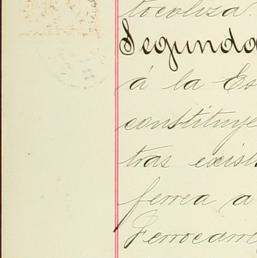 tocoliza.
Segunda
á la Es
constituye
tras exist
ferrea a
Ferrocarr